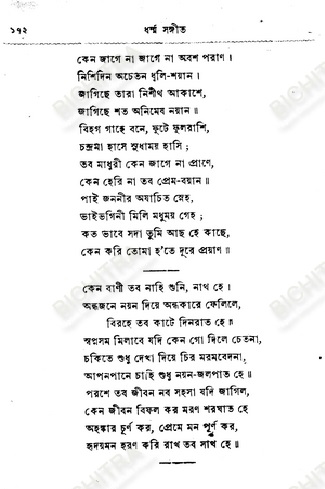 ১৭২ ধর্ম্ম সঙ্গীত
কেন জাগে না জাগে না অবশ পরাণ।
নিশিদিন অচেতন ধূলি-শয়ান।
জাগিছে তারা নিশীথ আকাশে,
জাগিছে শত অনিমেষ নয়ান॥
বিহগ গাহে বনে, ফুটে ফুলরাশি,
চন্দ্রমা হাসে সুধাময় হাসি;
তব মাধুরী কেন জাগে না প্রাণে,
কেন হেরি না তব প্রেম-বয়ান॥
পাই জননীর অযাচিত স্নেহ,
ভাইভগিনী মিলি মধুময় গেহ;
কত ভাবে সদা তুমি আছ হে কাছে,
কেন করি তোমা হ'তে দূরে প্রয়াণ॥
কেন বাণী তব নাহি শুনি, নাথ হে।
অন্ধজনে নয়ন দিয়ে অন্ধকারে ফেলিলে,
বিরহে তব কাটে দিনরাত হে॥
স্বপ্নসম মিলাবে যদি কেন গো দিলে চেতনা,
চকিতে শুধু দেখা দিয়ে চির মরমবেদনা,
আপনপানে চাহি শুধু নয়ন-জলপাত হে॥
পরশে তব জীবন নব সহসা যদি জাগিল,
কেন জীবন বিফল কর মরণ শরঘাত হে
অহঙ্কার চূর্ণ কর, প্রেমে মন পূর্ণ কর,
হৃদয়মন হরণ করি রাখ তব সাথ হে॥
BICHITRA